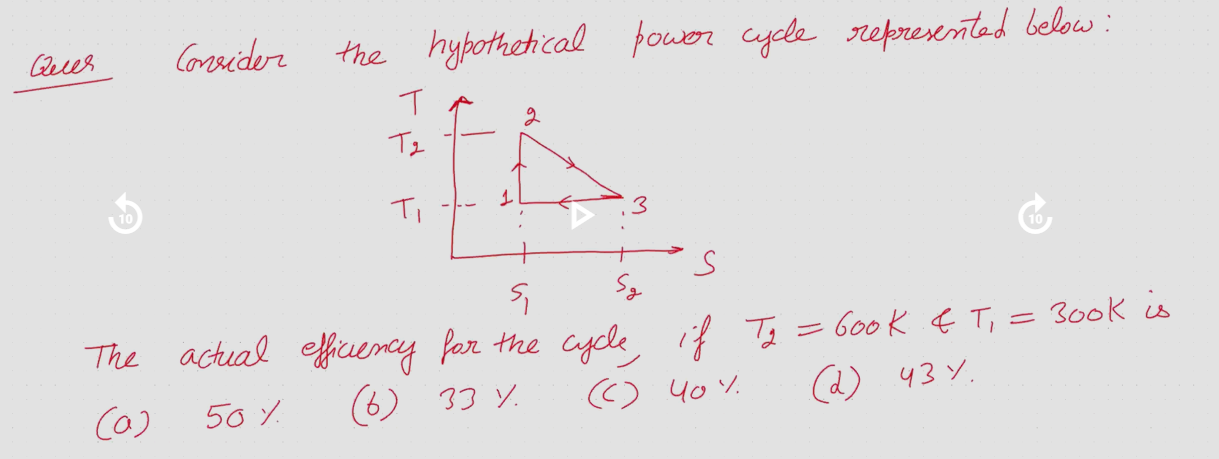 Ques Consider the hypothetical power cycle represented below:
T
T2
2
T1
1
3
S
S1
S2
The actual efficiency for the cycle, if T2 = 600K & T1 = 300K is
(a) 50 %. (b) 33 %. (c) 40 %. (d) 43 %.
10
10